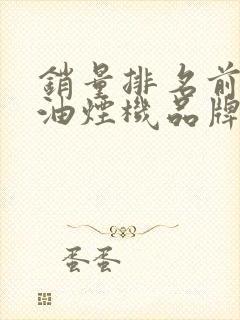 銷量排名前
油煙機品牌
蛋蛋